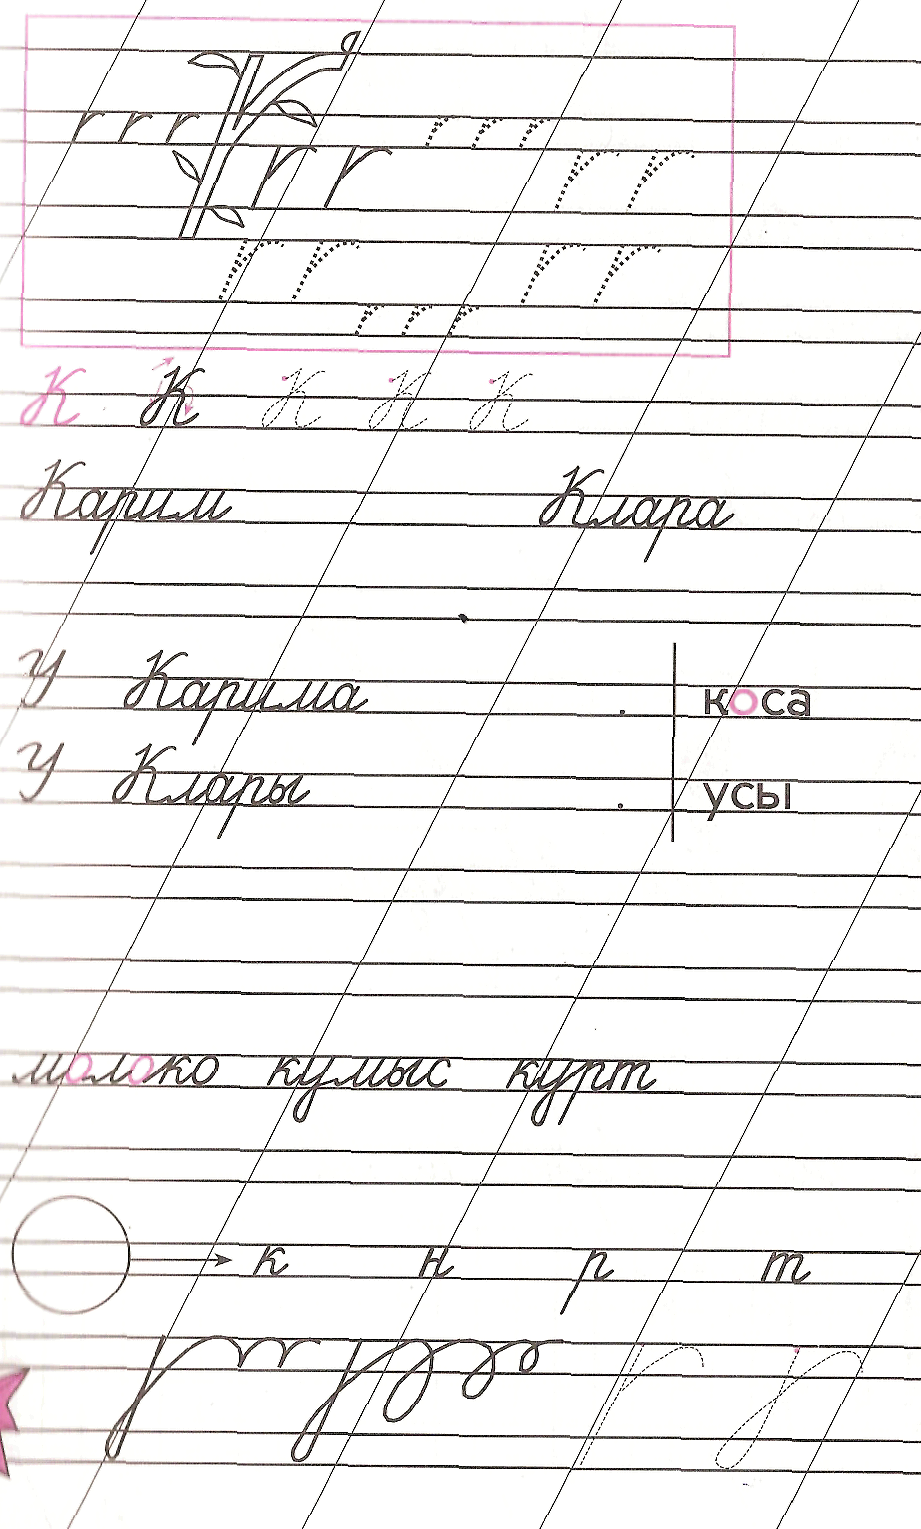 К К К К К
Карим Клара
У Карима . коса
У Клары . усы
молоко кумыс курт
к н р т